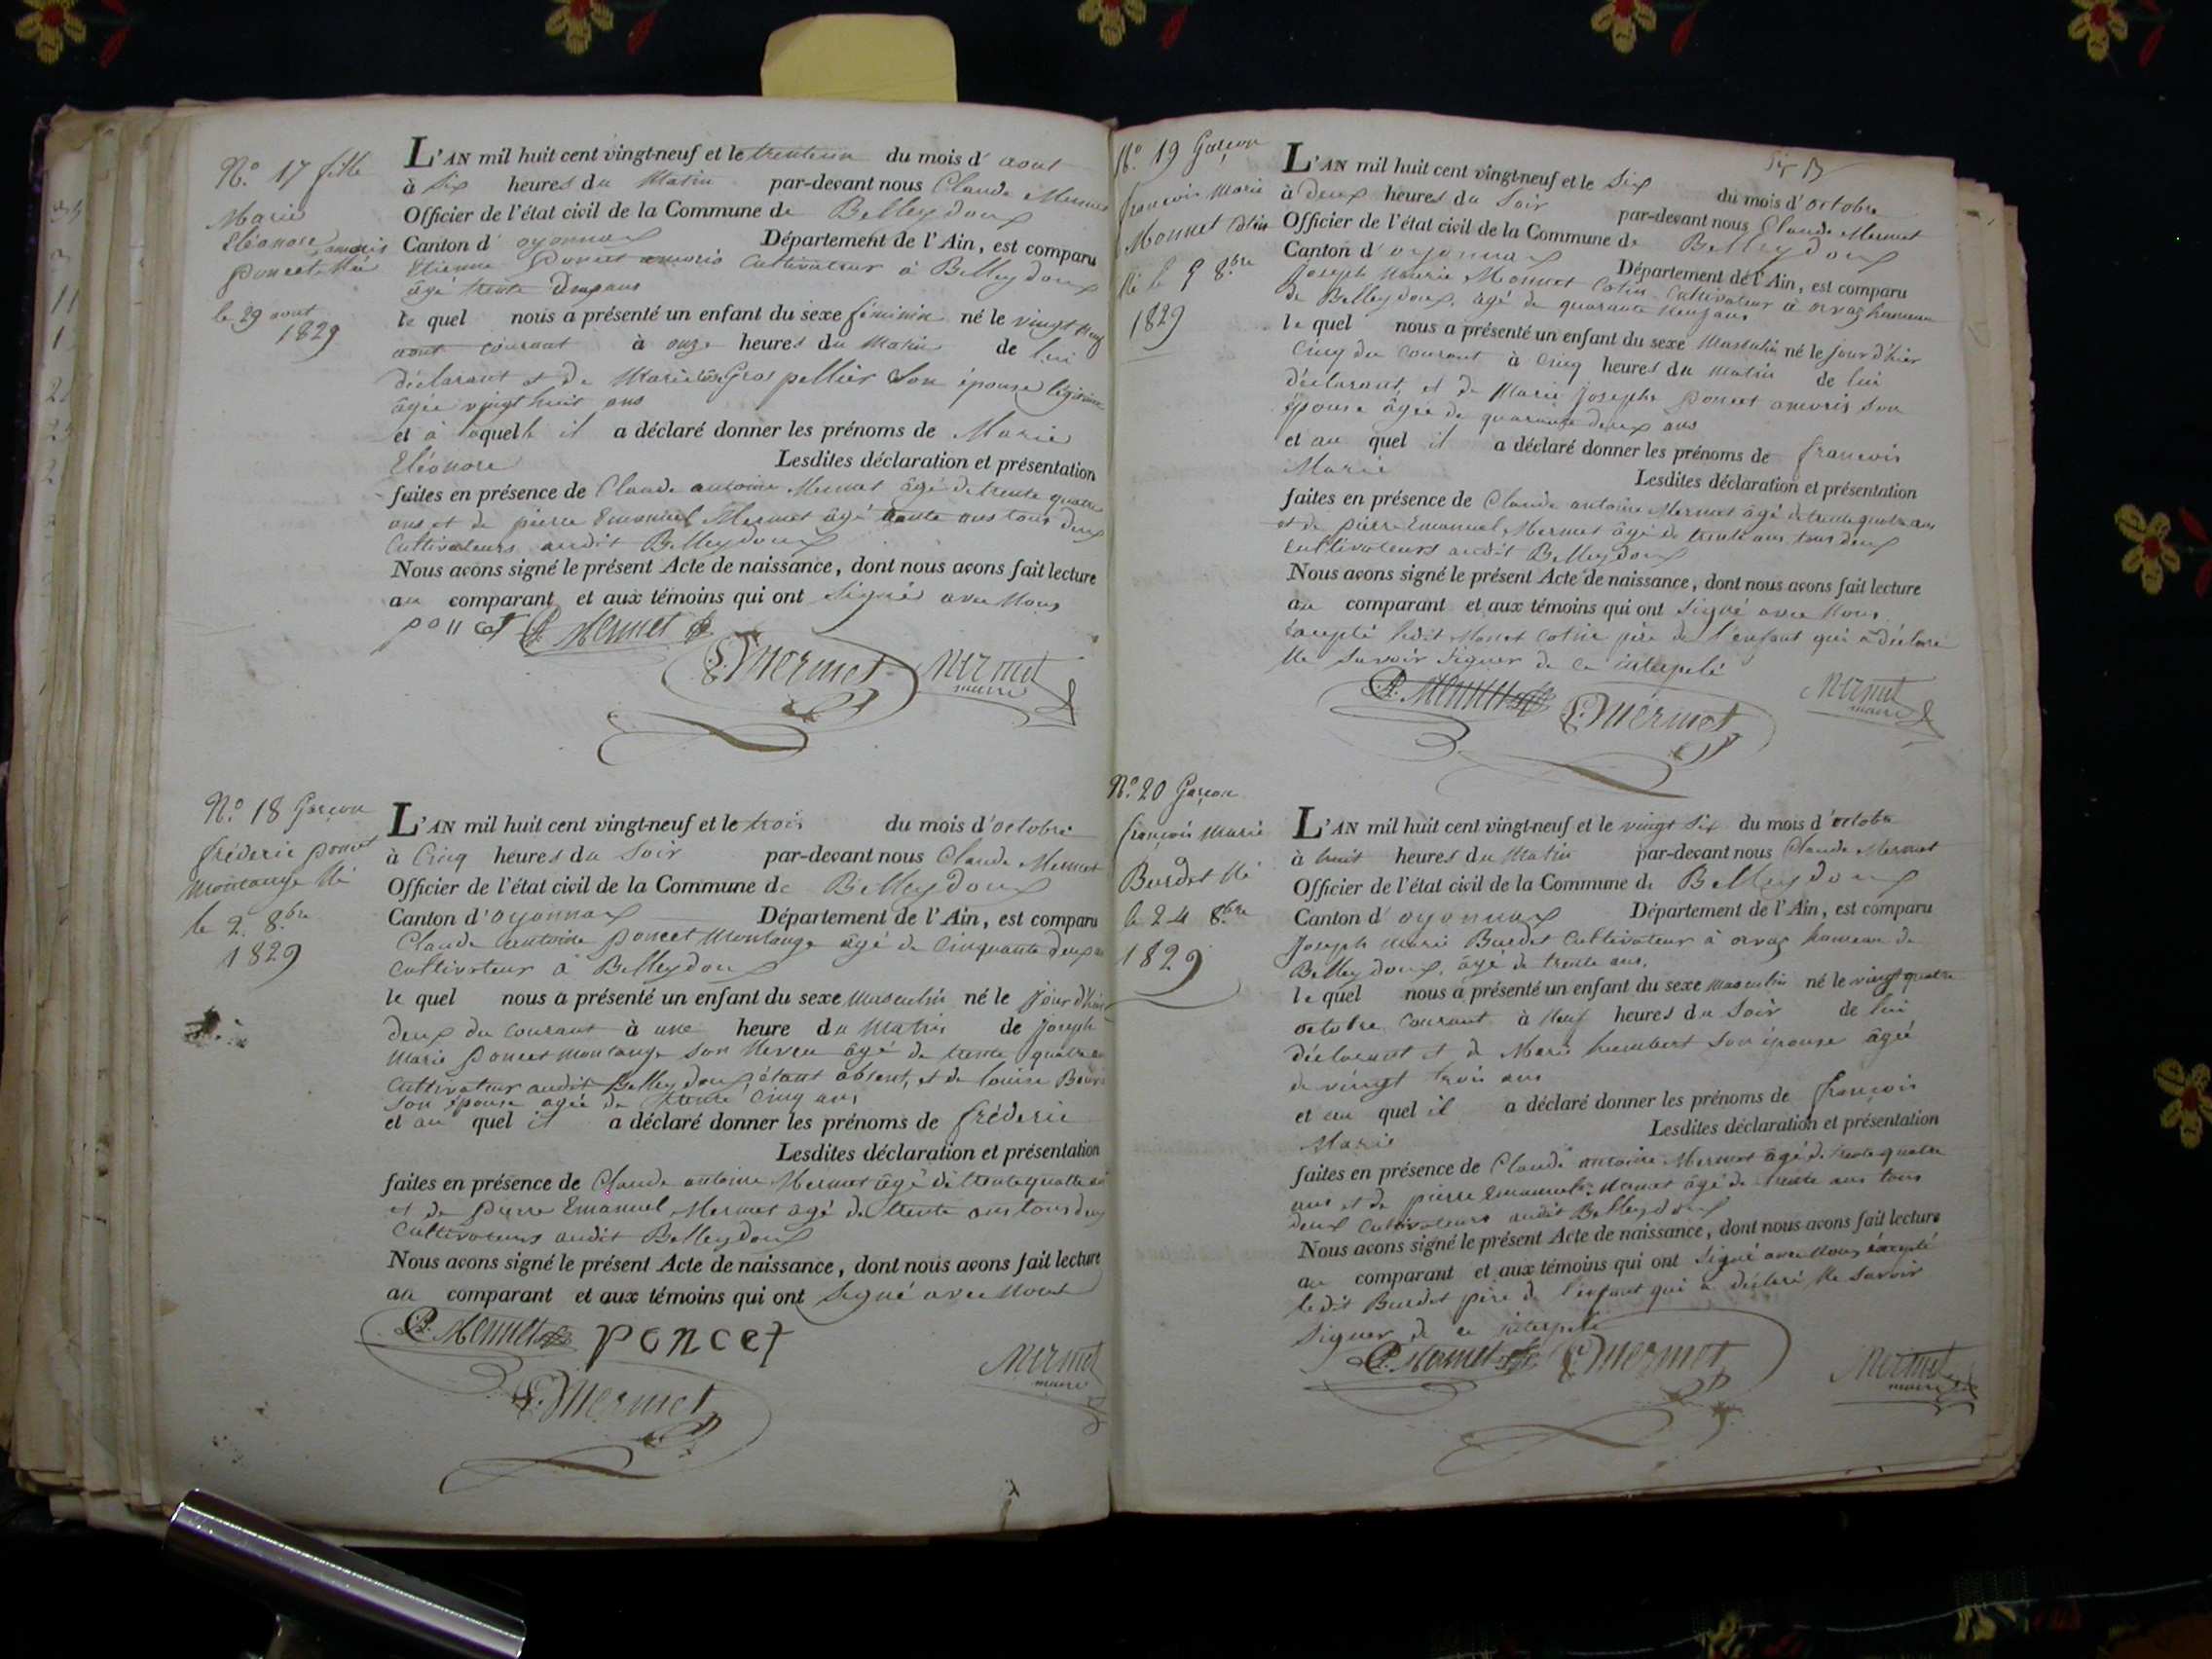 N.o 17 fille
Marie
Eléonore
poncet amoris Né
le 29 aout
1829
L'AN mil huit cent vingt-neuf et le trente un du mois d'aout
à Six heures du Matin par-devant nous Claude Mermet
Officier de l'état civil de la Commune de Belleydoux
Canton d'oyonnax Département de l'Ain, est comparu
Etienne poncet amoris Cultivateur à Belleydoux
âgé trente ans
le quel nous a présenté un enfant du sexe féminin né le vingt neuf
aout courant à onze heures du Matin de lui
déclarant et de Marie Gros pellier Son épouse légitime
âgée vingt huit ans
et à laquelle il a déclaré donner les prénoms de Marie
Eléonore Lesdites déclaration et présentation
faites en présence de Claude antoine Mermet âgé de trente quatre
ans et de pierre Emanuel Mermet âgé trente ans tous deux
Cultivateurs audit Belleydoux
Nous avons signé le présent Acte de naissance, dont nous avons fait lecture
au comparant et aux témoins qui ont Signé avec Nous
poncet Mermet
Mermet Mermet
maire
N.o 18 Garçon
fréderic poncet
montange Né
le 2 8.bre
1829
L'AN mil huit cent vingt-neuf et le trois du mois d'octobre
à Cinq heures du Soir par-devant nous Claude Mermet
Officier de l'état civil de la Commune de Belleydoux
Canton d'oyonnax Département de l'Ain, est comparu
Claude antoine poncet Montange âgé de Cinquante deux
Cultivateur à Belleydoux
le quel nous a présenté un enfant du sexe Masculin né le jour d'hier
deux du courant à une heure du Matin de joseph
Marie poncet montange son Neveu âgé de trente quatre
Cultivateur audit Belleydoux, étant absent, et de louise
Son épouse agée de trente Cinq ans
et au quel il a déclaré donner les prénoms de fréderic
Lesdites déclaration et présentation
faites en présence de Claude antoine Mermet âgé de trente quatre
et de pierre Emanuel Mermet agé de trente ans tous deux
Cultivateurs audit Belleydoux
Nous avons signé le présent Acte de naissance, dont nous avons fait lecture
au comparant et aux témoins qui ont Signé avec Nous
Mermet poncet
Mermet Mermet
maire
N.o 19 Garçon
françois Marie
Monnet Cotin
Né le 5 8.bre
1829
L'AN mil huit cent vingt-neuf et le Six du mois d'octobre
à deux heures du Soir par-devant nous Claude Mermet
Officier de l'état civil de la Commune de Belleydoux
Canton d'oyonnax Département de l'Ain, est comparu
Joseph Marie Monnet Cotin Cultivateur à orvaz hameau
de Belleydoux, âgé de quarante neuf ans
le quel nous a présenté un enfant du sexe Masculin né le jour d'hier
Cinq du Courant à Cinq heures du Matin de lui
déclarant et de Marie Josephe poncet amoris son
épouse âgée de quarante deux ans
et au quel il a déclaré donner les prénoms de françois
Marie Lesdites déclaration et présentation
faites en présence de Claude antoine Mermet âgé de trente quatre ans
et de pierre Emanuel Mermet âgé de trente ans, tous deux
Cultivateurs audit Belleydoux
Nous avons signé le présent Acte de naissance, dont nous avons fait lecture
au comparant et aux témoins qui ont Signé avec Nous
éxcepté ledit Monet Cotin père de l'enfant qui a déclaré
Ne Savoir Signer de ce interpelé
Mermet Mermet Mermet
maire
N.o 20 Garçon
françois Marie
Burdet Né
le 24 8.bre
1829
L'AN mil huit cent vingt-neuf et le vingt Six du mois d'octobre
à huit heures du Matin par-devant nous Claude Mermet
Officier de l'état civil de la Commune de Belleydoux
Canton d'oyonnax Département de l'Ain, est comparu
Joseph Marie Burdet Cultivateur à orvaz hameau de
Belleydoux, âgé de trente ans.
le quel nous a présenté un enfant du sexe masculin né le vingt quatre
octobre Courant à Neuf heures du Soir de lui
déclarant et de Marie humbert Son épouse âgée
de vingt trois ans
et au quel il a déclaré donner les prénoms de françois
Marie Lesdites déclaration et présentation
faites en présence de Claude antoine Mermet âgé de trente quatre
ans et de pierre Emanuel Mermet âgé de trente ans tous
deux Cultivateurs audit Belleydoux
Nous avons signé le présent Acte de naissance, dont nous avons fait lecture
au comparant et aux témoins qui ont Signé avec Nous éxcepté
ledit Burdet père de l'enfant qui a déclaré Ne Savoir
Signer de ce interpelé
Mermet Mermet Mermet
maire